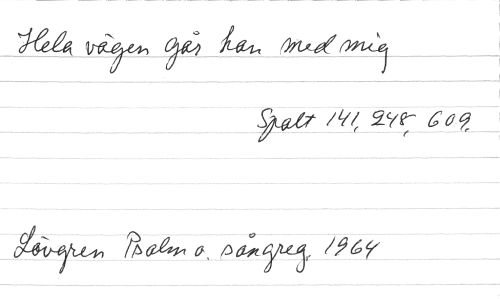 Hela vägen går han med mig
Spalt 141, 248, 609.
Lövgren Psalm o. sångreg. 1964